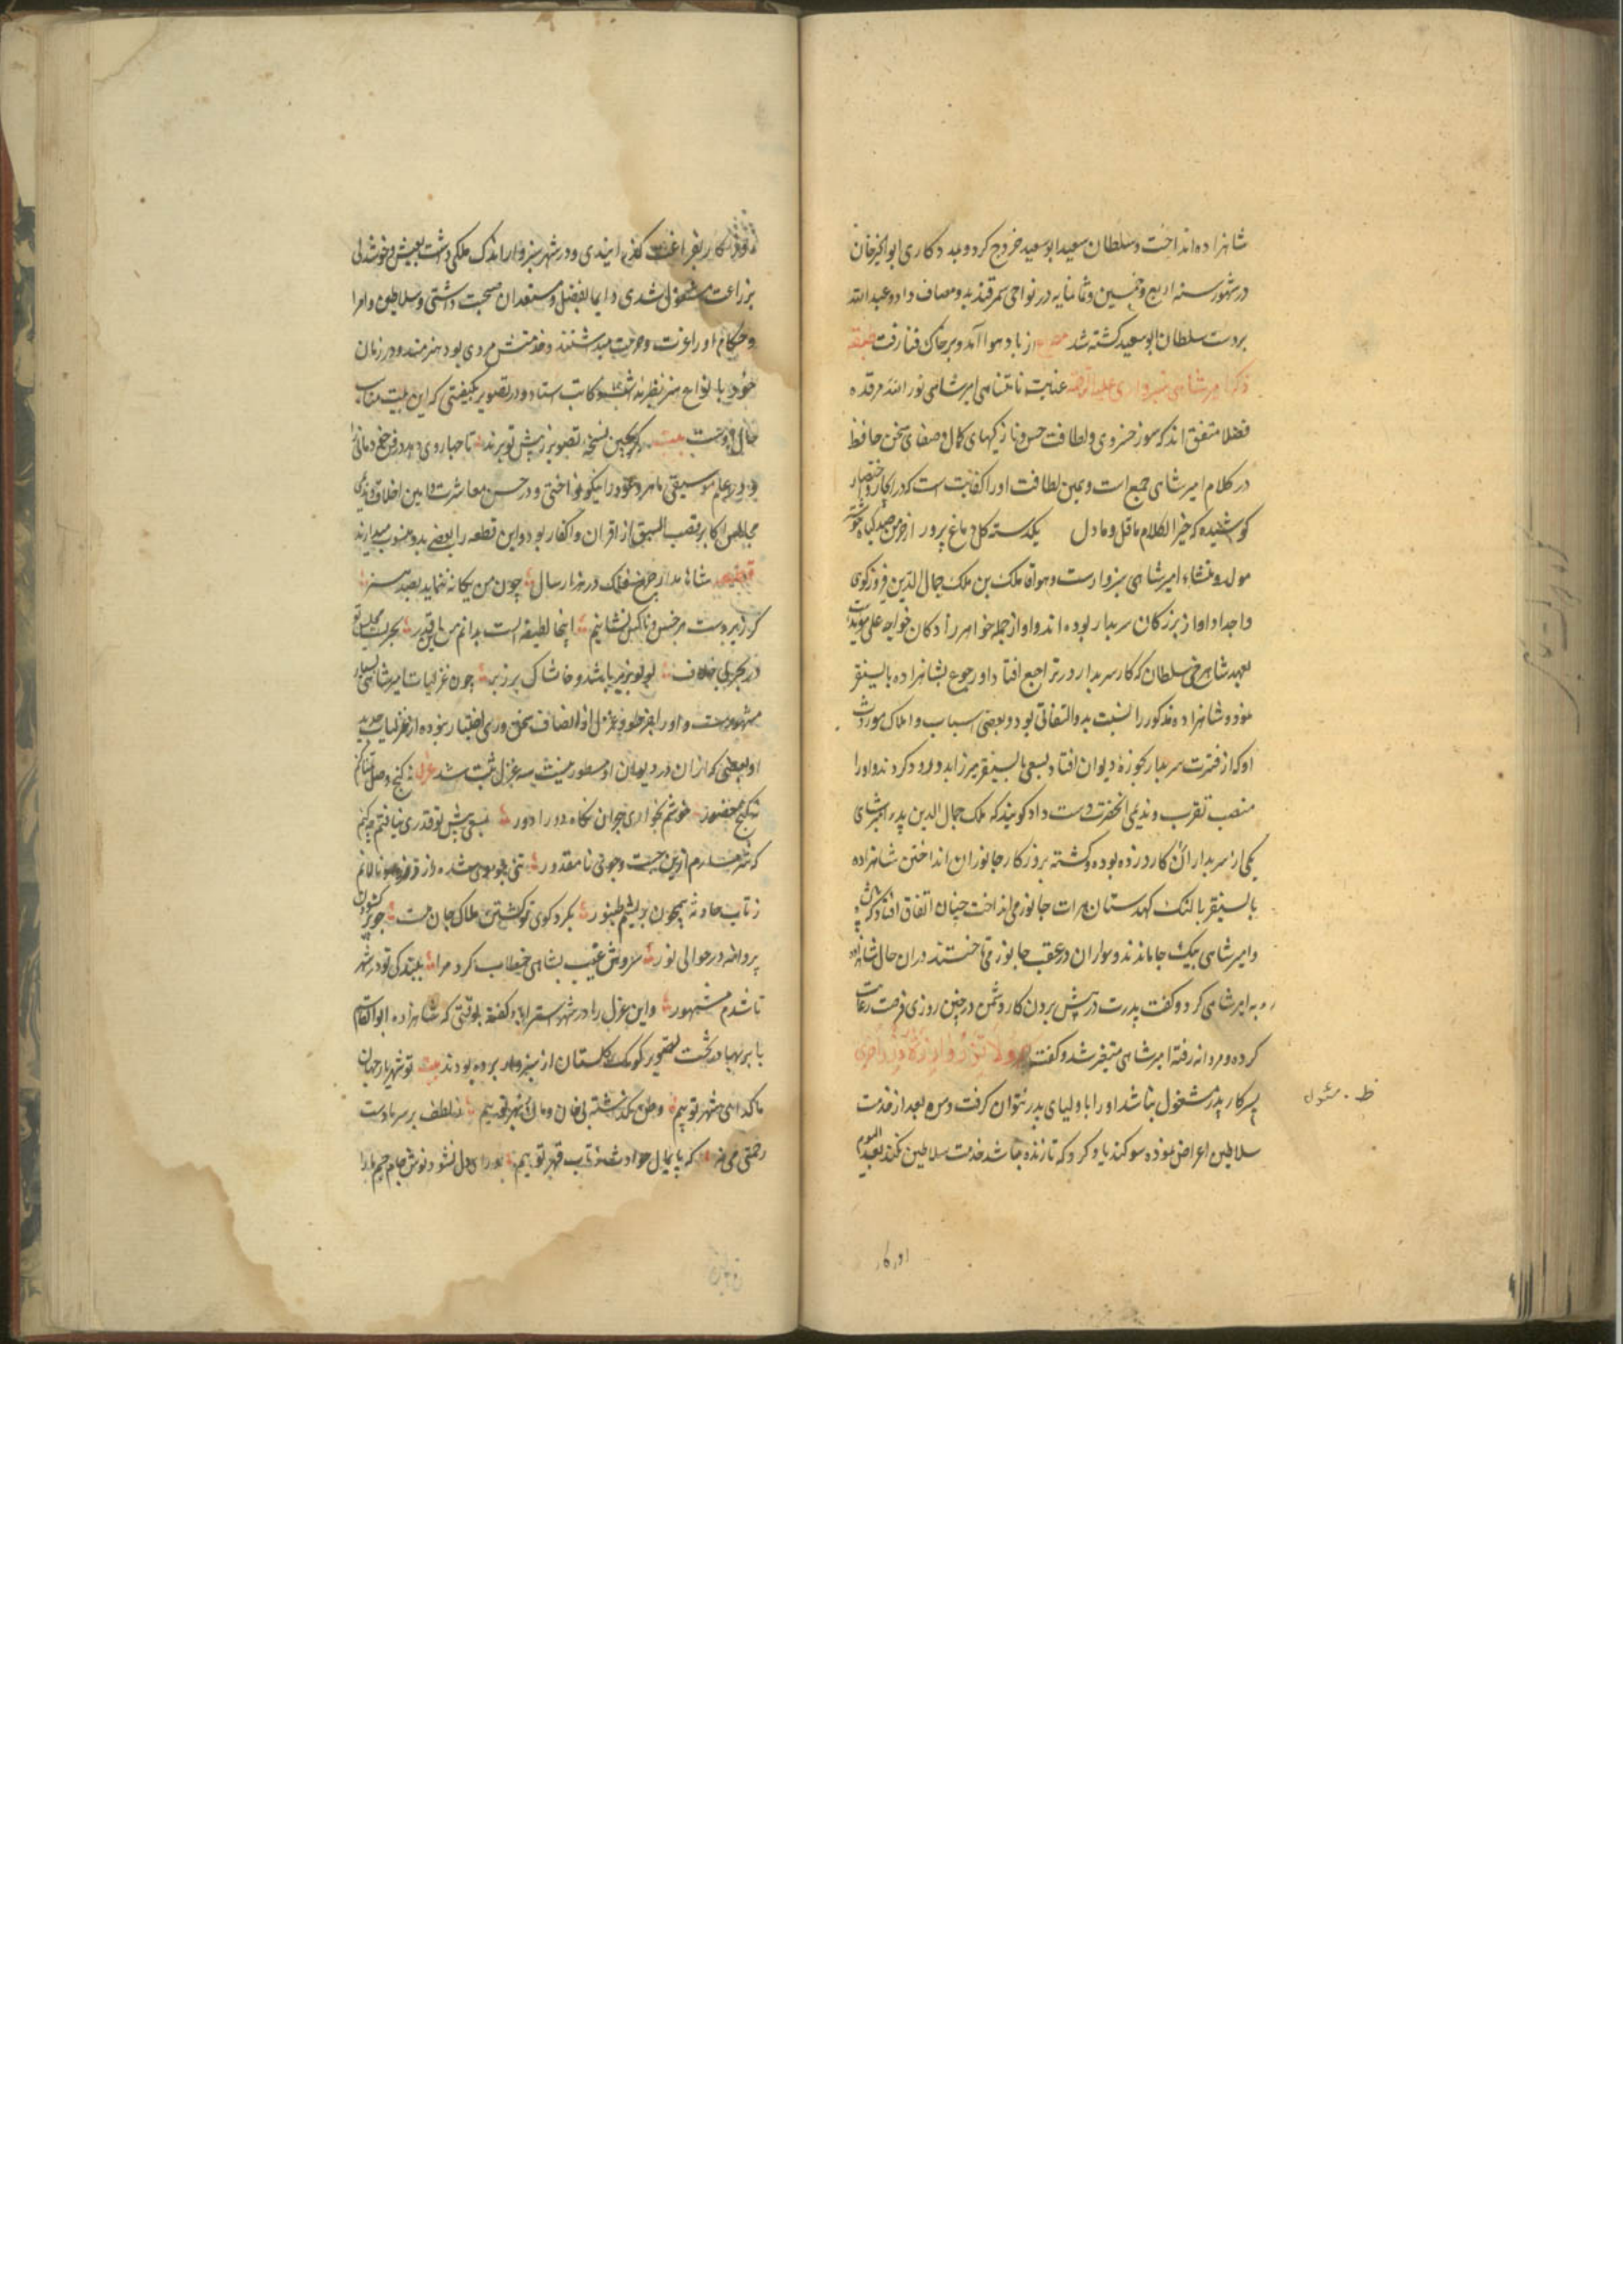 شاهزاده انداخت و سلطان سعید ابوسعید خروج کرد و بمدد کاری ابوالخیر خان
در شهور سنه اربع و خمسین و ثمانمایه در نواحی سمرقند بدو مصاف داد و عبدالله
بردست سلطان ابوسعید کشته شد مصرع از باد هوا آمد و بر خاک فنا رفت طبقه
ذکر امیر شاهی سبزواری علیه الرحمه عنایت نامتناهی امیر شاهی نور الله مرقده
فضلا متفق اند که سوز خسروی و لطافت حسن و نازکیهای کمال و صفای سخن حافظ
در کلام امیر شاهی جمع است و همین لطافت او را کفایت است که در ایجاز و اختصار
کوشیده که خیر الکلام ما قل و ما دل یکدسته کل دماغ پرور از خرمن صد کیاه خوشتر
مولد و منشاء امیر شاهی سبزوارست و هو آقا ملک بن ملک جمال الدین فیروزکوی
و اجداد او از بزرکان سربدار بوده اند و او از جمله خواهر زادکان خواجه علی مویدست
بعهد شاهرخ سلطان که کار سربدار در تراجع افتاد او رجوع بشاهزاده بایسنقر
نمود و شاهزاده مذکور را نسبت بدو التفاتی بود و بعضی اسباب و املاک موروث
او که از فترت سربدار بحوزه دیوان افتاد بسعی بایسنقر میرزا بدو رد کردند و او را
منصب تقرب و ندیمی انحضرت دست داد کویند که ملک جمال الدین پدر امیر شاهی
یکی از سربداران کارد زده بوده و کشته بروزکار جانور ان انداختن شاهزاده
بایسنقر بالنک کهدستان هرات جانور می انداخت چنان اتفاق افتاد که
و امیر شاهی بیک جا ماندند و سواران در عقب جانور می تاختند دران حال شاهزاده
روبه امیر شاهی کرد و کفت پدرت در پیش بردن کار دشمن در چنین روزی فرصت رعایت
کرده و مردانه رفته امیر شاهی متغیر شد و کفت ولا تزر وازرة وزر اخری
پسر کار پدر مشغول نباشد او را با ولیای پدر نتوان کرفت و من بعد از خدمت
ظ. مسئول
سلاطین اعراض نموده سوکند یاد کرد که تا زنده باشد خدمت سلاطین نکند بعد الیوم
روزکار بفراغت کذرانیدی و در شهر سبزوار اندک ملکی داشت بعیش و خوشدلی
بزراعت مشغول شدی دایما بفضل و مستعدان صحبت داشتی و سلاطین و امرا
و حکام او را عزت و حرمت میداشتند و خدمتش مردی بود هنرمند و در زمان
خود بانواع هنر نظیر نداشت و کاتب استاد و در تصویر بکیفیتی که این بیت مناسب
حال اوست بیت کر بچین نسخه تصویر ز پیش تو برند تا چها روی دهد در فن خود مانی را
و در علم موسیقی ماهر و عود را نیکو نواختی و در حسن معاشرت و آیین اخلاق و ندیمی
مجلس اکابر قصب السبق از اقران و اکفا ربود و این قطعه را بعضی بدو منسوب میدارند
قطعه شاها مدار چرخ فلک در هزار سال چون من یکانه ننماید بصد هنر
کر زیر دست هر خس و ناکس نشانیم اینجا لطیفه ایست بدانم من این قدر بحریست مجلس تو
در بحر بی خلاف لولو بزیر باشد و خاشاک بر زبر چون غزلیات امیر شاهی بسیار
مشهورست و او را بغیر طور غزل از اصناف سخن وری اختیار نبوده از غزلیات جدید
او بعضی که از ان در دیوان او مسطور نیست سه غزل ثبت شد غزل نه کنج وصل تمنا کنم
نه کنج حضور خوشم بخواری هجران و نکاه دورادور بسعی پیش تو قدری نیافتم چه کنم
که شرمسارم ازین جست وجوی نامقدور تنی چو موی شده زرد و نالانم
ز تاب حادثه همچون بریشم طنبور بکرد کوی تو کشتن هلاک جان منست چو پر کشودن
پروانه در حوالی نور سروش غیب بشاهی خطاب کرد مرا ببندکی تو در شهر
تا شدم مشهور و این غزل را در شهر استراباد کفته بوقتی که شاهزاده ابوالقاسم
بابر بهادر بجهت تصویر کوشک کلستان از سبزوار برده بودند بیت تو شهریار جهانی
ما کدای شهر توییم وطن کذاشته بی خان و مان ز بهر توییم ز لطف بر سر ما دست
رحمتی می نه که پایمال حوادث ز تاب قهر توییم دل نشود نوش جام جم ما را